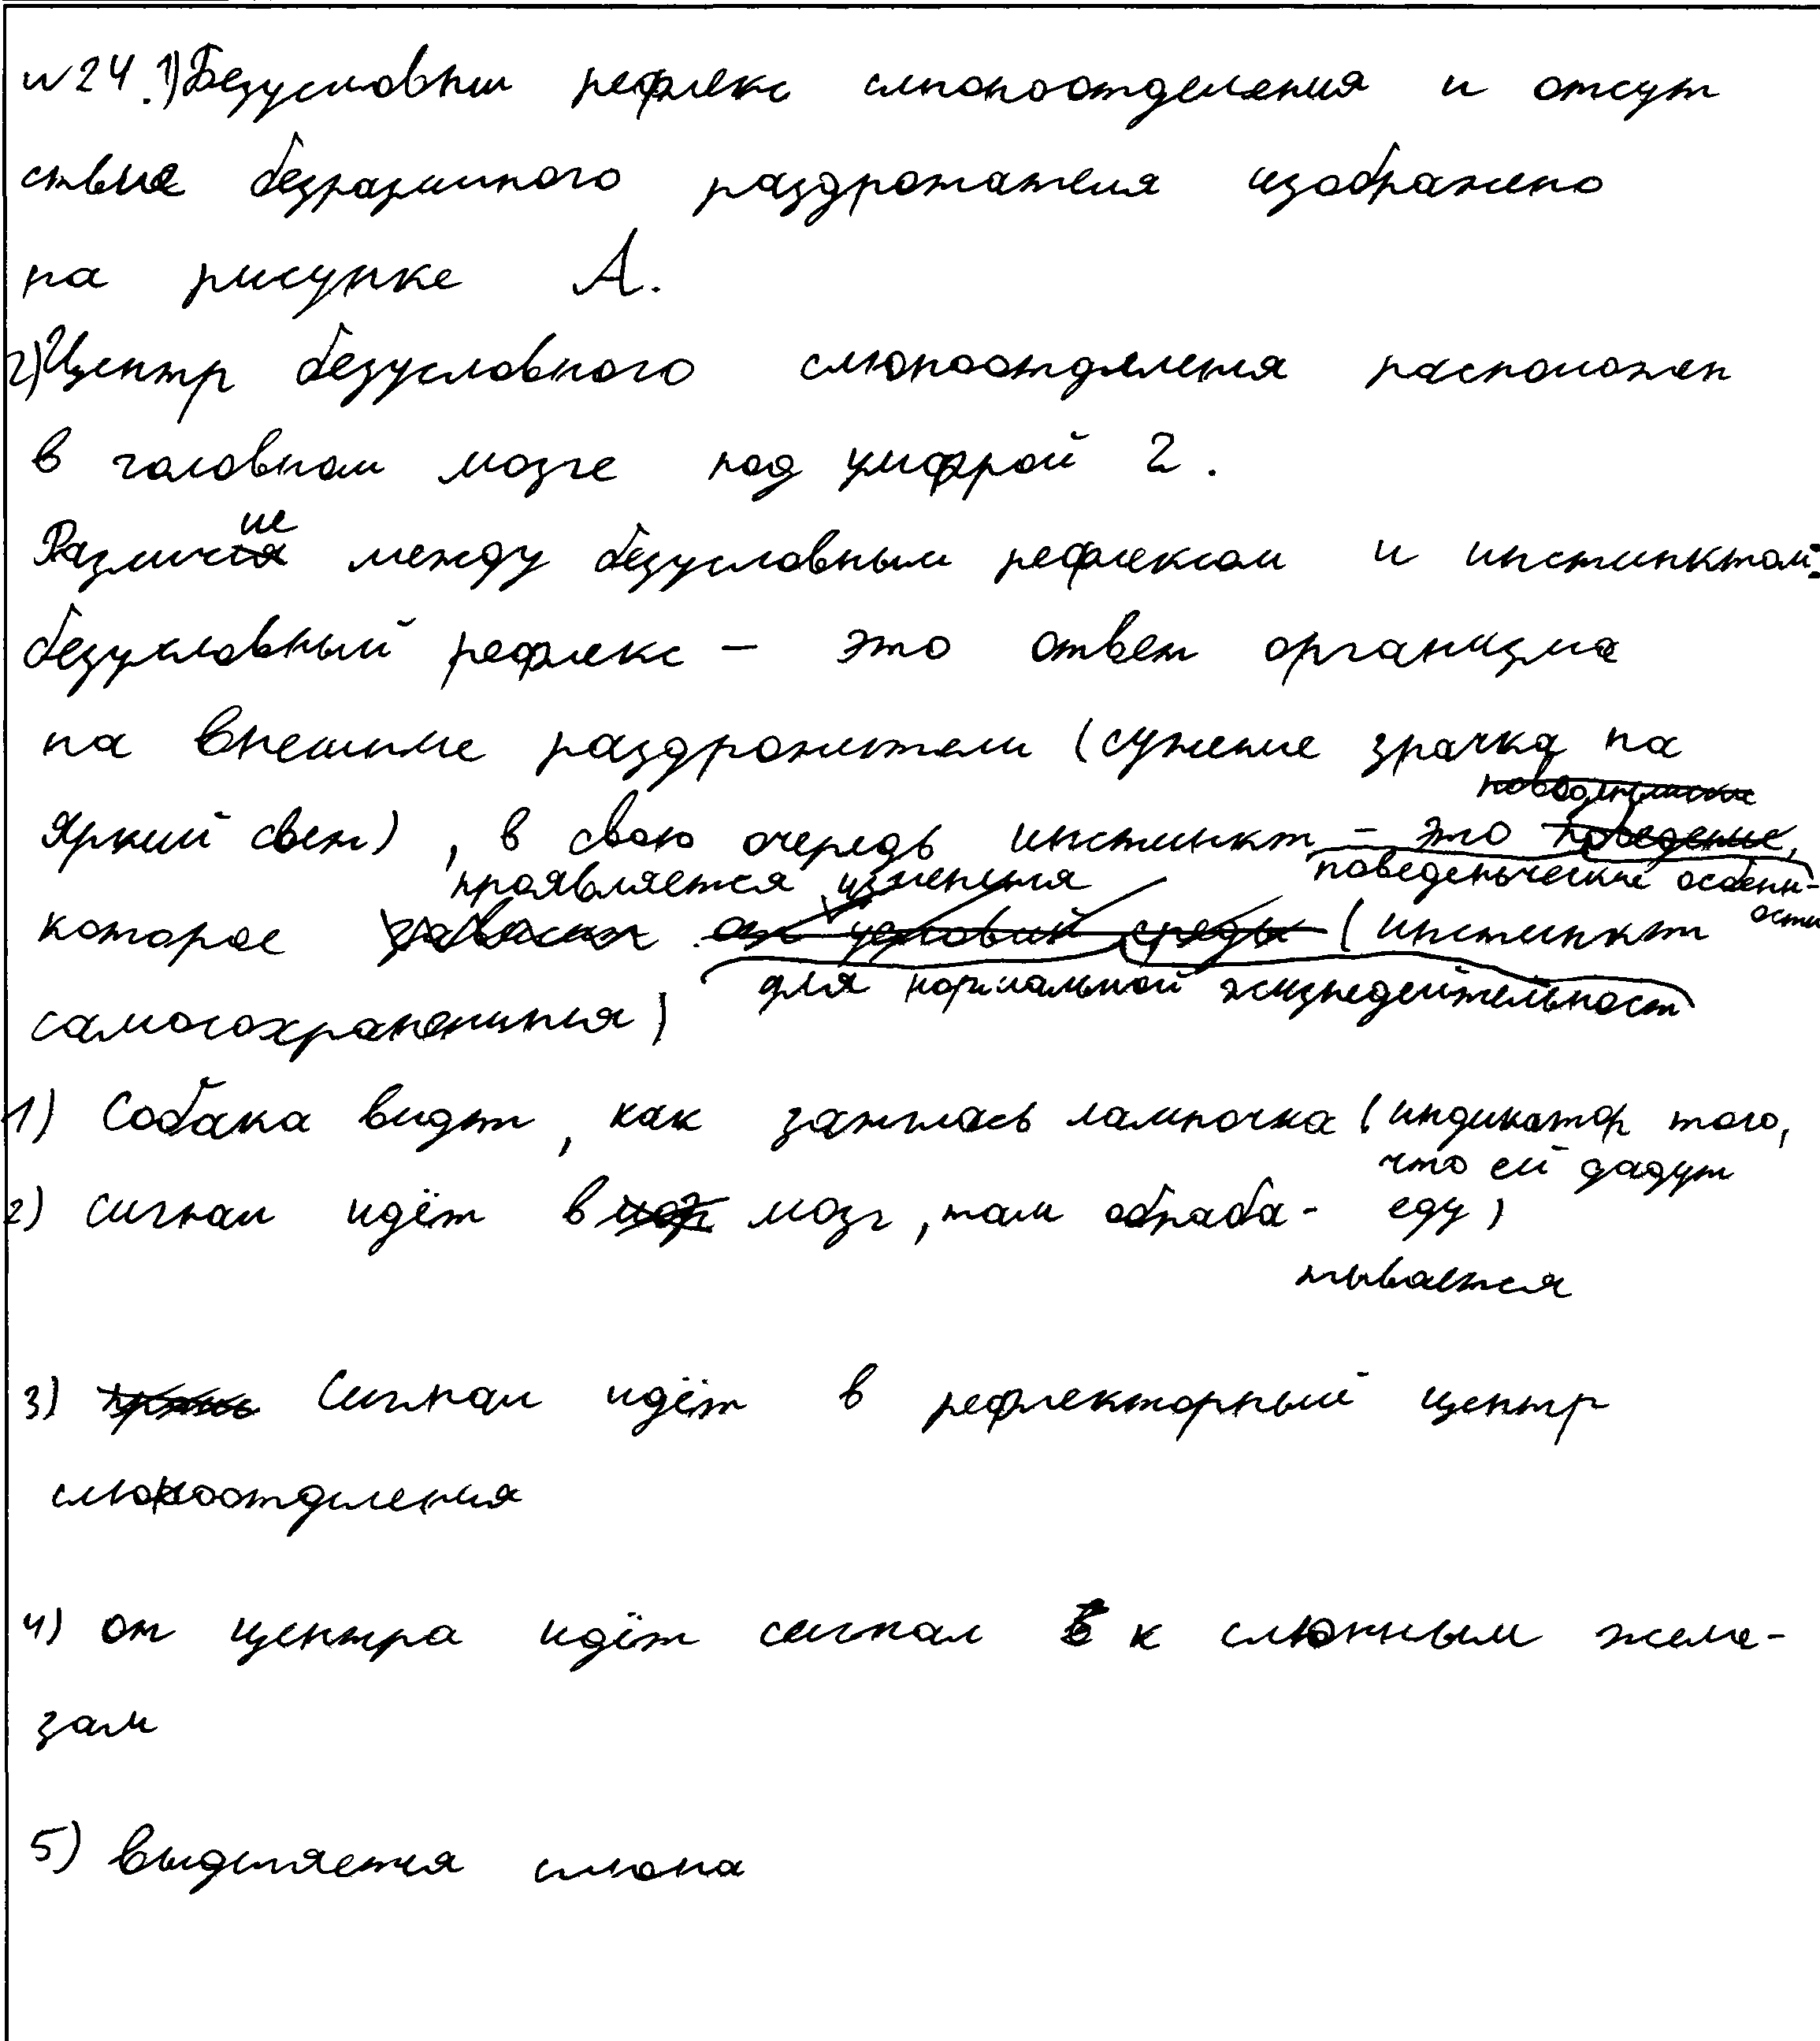 №24. 1) Безусловный рефлекс слюноотделения и отсут
ствие безразличного раздрожателя изображено
на рисунке А.
2) Центр безусловного слюноотделения расположен
в головном мозге под цифрой 2.
Различие между безусловным рефлексом и инстинктом:
безусловный рефлекс – это ответ организма
на внешние раздрожители (сужение зрачка на
яркий свет), в свою очередь инстинкт – это
поведеньческие особенности
которое проявляется изменения
для нормальной жизнедеятельност (инстинкт
самосохранения)
1) Собака видет, как зажглась лампочка (индикатор того,
что ей дадут еду)
2) сигнал идёт в мозг, там обраба-
тывается
3) Сигнал идёт в рефлекторный центр
слюноотделения
4) от центра идёт сигнал к слюнным желе-
зам
5) выделяется слюна